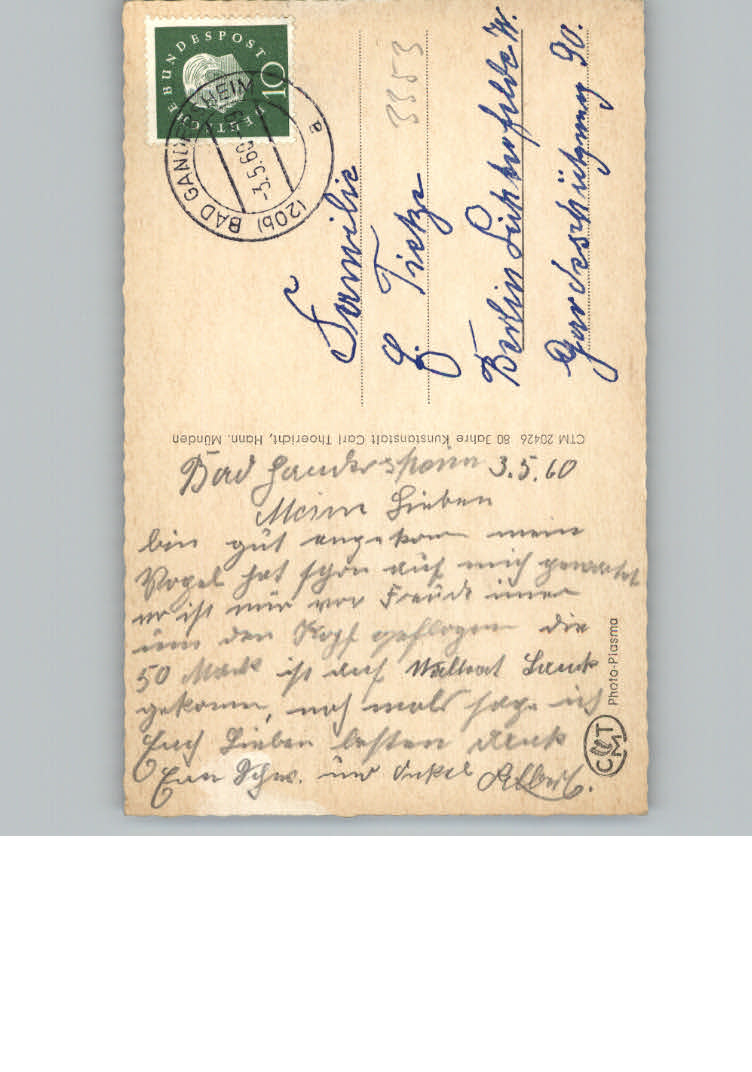 DEUTSCHE BUNDESPOST
10
(20b) BAD GANDERSHEIM
-3.5.60
a
3353
Familie
E. Tietze
Berlin Lichterfelde W.
Gardeschützenweg 90.
CTM 20426 80 Jahre Kunstanstalt Carl Thoericht, Hann. Münden
Bad Gandersheim 3.5.60
Meine Lieben
bin gut angekom mein
Vogel hat schon auf mich gewartet
er ist mir vor Freude immer
um den Kopf geflogen die
50 Mark ist auf Bank
gekomm, noch mals sage ich
Euch Lieben besten Dank
Euer Schw. und Onkel Albert.
CMT
Photo-Plasma